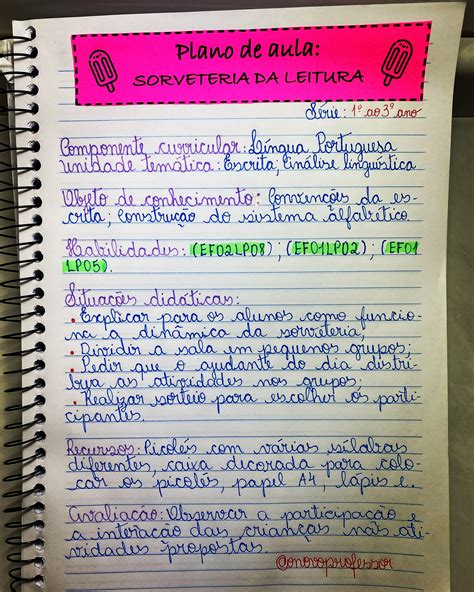 Plano de aula:
SORVETERIA DA LEITURA
Série: 1º ao 3º ano
Componente curricular: Língua Portuguesa
Unidade temática: Escrita; Análise linguística
Objeto de conhecimento: Convenções da es-
crita; Construção do sistema alfabético.
Habilidades: (EF02LP08); (EF01LP02); (EF01
LP05).
Situações didáticas:
• Explicar para os alunos como funcio-
na a dinâmica da sorveteria;
• Dividir a sala em pequenos grupos;
• Pedir que o ajudante do dia distri-
bua as atividades nos grupos;
• Realizar sorteio para escolher os parti-
cipantes.
Recursos: Picolés com várias sílabas
diferentes, caixa decorada para colo-
car os picolés, papel A4, lápis e.
Avaliação: Observar a participação e
a interação das crianças nas ati-
vidades propostas.
@onovoprofessor